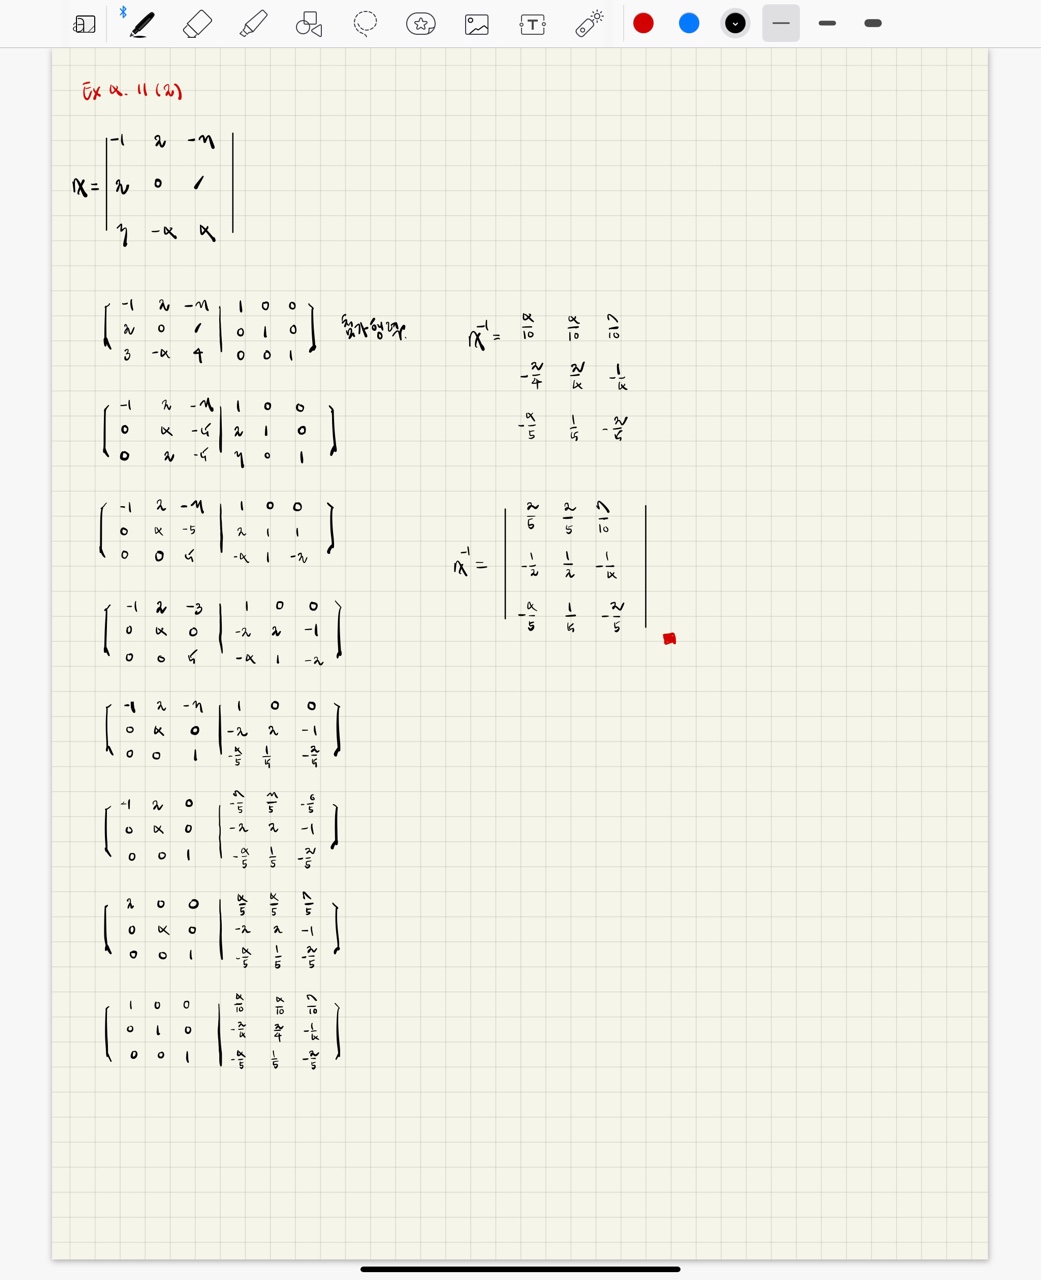 T
Ex 4.11 (2)
X = | -1 2 -3 |
| 2 0 1 |
| 3 -4 4 |
[ -1 2 -3 | 1 0 0 ]
[ 2 0 1 | 0 1 0 ]
[ 3 -4 4 | 0 0 1 ]
[ -1 2 -3 | 1 0 0 ]
[ 0 4 -5 | 2 1 0 ]
[ 0 2 -5 | 3 0 1 ]
[ -1 2 -3 | 1 0 0 ]
[ 0 4 -5 | 2 1 1 ]
[ 0 0 5 | -4 1 -2 ]
[ -1 2 -3 | 1 0 0 ]
[ 0 4 0 | -2 2 -1 ]
[ 0 0 5 | -4 1 -2 ]
[ -1 2 -3 | 1 0 0 ]
[ 0 4 0 | -2 2 -1 ]
[ 0 0 1 | -4/5 1/5 -2/5 ]
[ -1 2 0 | -7/5 3/5 -6/5 ]
[ 0 4 0 | -2 2 -1 ]
[ 0 0 1 | -4/5 1/5 -2/5 ]
[ 2 0 0 | 4/5 4/5 7/5 ]
[ 0 4 0 | -2 2 -1 ]
[ 0 0 1 | -4/5 1/5 -2/5 ]
[ 1 0 0 | 4/10 4/10 7/10 ]
[ 0 1 0 | -2/4 2/4 -1/4 ]
[ 0 0 1 | -4/5 1/5 -2/5 ]
X⁻¹ = 4/10 4/10 7/10
-2/4 2/4 -1/4
-4/5 1/5 -2/5
X⁻¹ = | 2/5 2/5 7/10 |
| -1/2 1/2 -1/4 |
| -4/5 1/5 -2/5 |